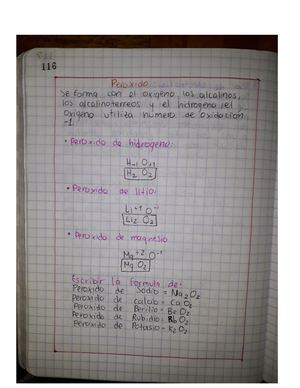 116
Peroxido
Se forma con el oxigeno, los alcalinos,
los alcalinoterreos y el hidrogeno, el
oxigeno utiliza numero de oxidacion
-1.
• Peroxido de hidrogeno:
H-1 O+1
H2 O2
• Peroxido de litio:
Li+1 O-1
Li2 O2
• Peroxido de magnesio
Mg+2 O-1
Mg O2
Escribir la formula de:
Peroxido de Sodio = Na2O2
Peroxido de calcio = CaO2
Peroxido de Berilio = BeO2
Peroxido de Rubidio = RbO2
Peroxido de Potasio = K2O2